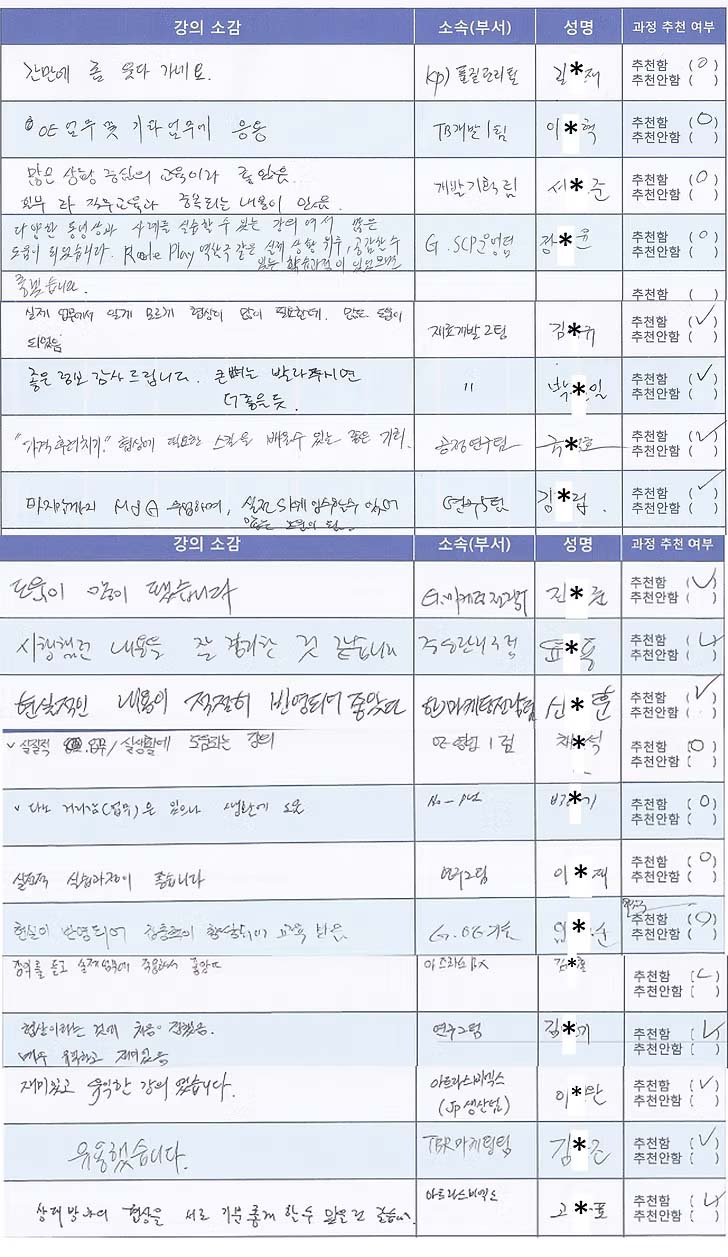 강의 소감 소속(부서) 성명 과정 추천 여부
간만에 좀 웃다 가네요. 김*재 추천함 (O)
추천안함 ( )
OE업무 및 기타업무에 응용 TB개발1팀 이*혁 추천함 (O)
추천안함 ( )
많은 상황 중심의 교육이라 좋았음. 개발기획팀 *준 추천함 (O)
직무교육과 중복되는 내용이 있음. 추천안함 ( )
다양한 동영상과 사례를 실습할 수 있는 강의여서 많은 G.SCP운영팀 *윤 추천함 (O)
도움이 되었습니다. Role Play 역할극 같은 실제 상황 위주, 공감할 수 추천안함 ( )
있는 학습과정이 있었으면
좋겠습니다. 추천함 ( )
실제 업무에서 알게 모르게 협상이 많이 필요한데, 많은 도움이 재료개발2팀 김*규 추천함 (✓)
되었음 추천안함 ( )
좋은 정보 감사드립니다. 큰뼈는 발라주시면 " 박*일 추천함 (✓)
더 좋을듯. 추천안함 ( )
"가격후려치기" 협상에 필요한 스킬을 배울수 있는 좋은 기회. 공정연구팀 *호 추천함 (✓)
추천안함 ( )
마지막까지 연구5팀 김* 추천함 (✓)
추천안함 ( )
강의 소감 소속(부서) 성명 과정 추천 여부
도움이 많이 됐습니다 G.마케팅전략 진*준 추천함 (✓)
추천안함 ( )
내용을 잘 것 같습니다 *욱 추천함 (✓)
추천안함 ( )
현실적인 내용이 적절히 반영되어 좋았다 마케팅전략팀 신*훈 추천함 (✓)
추천안함 ( )
실질적 업무/실생활에 도움되는 강의 1팀 채*석 추천함 (O)
추천안함 ( )
다소 거리감(업무)은 있으나 *기 추천함 (O)
추천안함 ( )
실질적 실습과정이 좋습니다 연구2팀 이*재 추천함 (O)
추천안함 ( )
현실이 반영되어 *순 추천함 (O)
추천안함 ( )
강의를 듣고 실제업무에 적용해서 좋았다 아트라스BX 김* 추천함 (✓)
추천안함 ( )
협상이라는 것에 처음이 연구2팀 김*기 추천함 (✓)
매우 유익하고 재미있음 추천안함 ( )
재미있고 유익한 강의 였습니다. 아트라스비엑스 이*만 추천함 (✓)
(JP생산팀) 추천안함 ( )
유용했습니다. TBR마케팅팀 김*근 추천함 (✓)
추천안함 ( )
상대방과의 협상을 서로 기분좋게 할수 있을것 같습니다. 아트라스비엑스 고*표 추천함 (✓)
추천안함 ( )